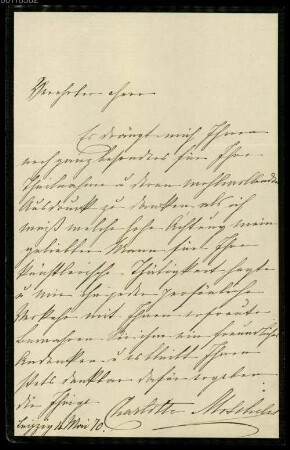 Verehrter Herr
Es drängt mich Ihnen
noch ganz besonders für Ihre
Theilnahme u deren wohlwollenden
Ausdruck zu danken, als ich
weiß welche hohe Achtung mein
geliebter Mann für Ihre
künstlerische Thätigkeit hegte
u wie ihn jeder persönliche
Verkehr mit Ihnen erfreute.
Bewahren Sie ihm ein freundliches
Andenken u es bleibt Ihnen
stets dankbar dafür ergeben
die Ihrige
Charlotte Moscheles
Leipzig Mai 70.